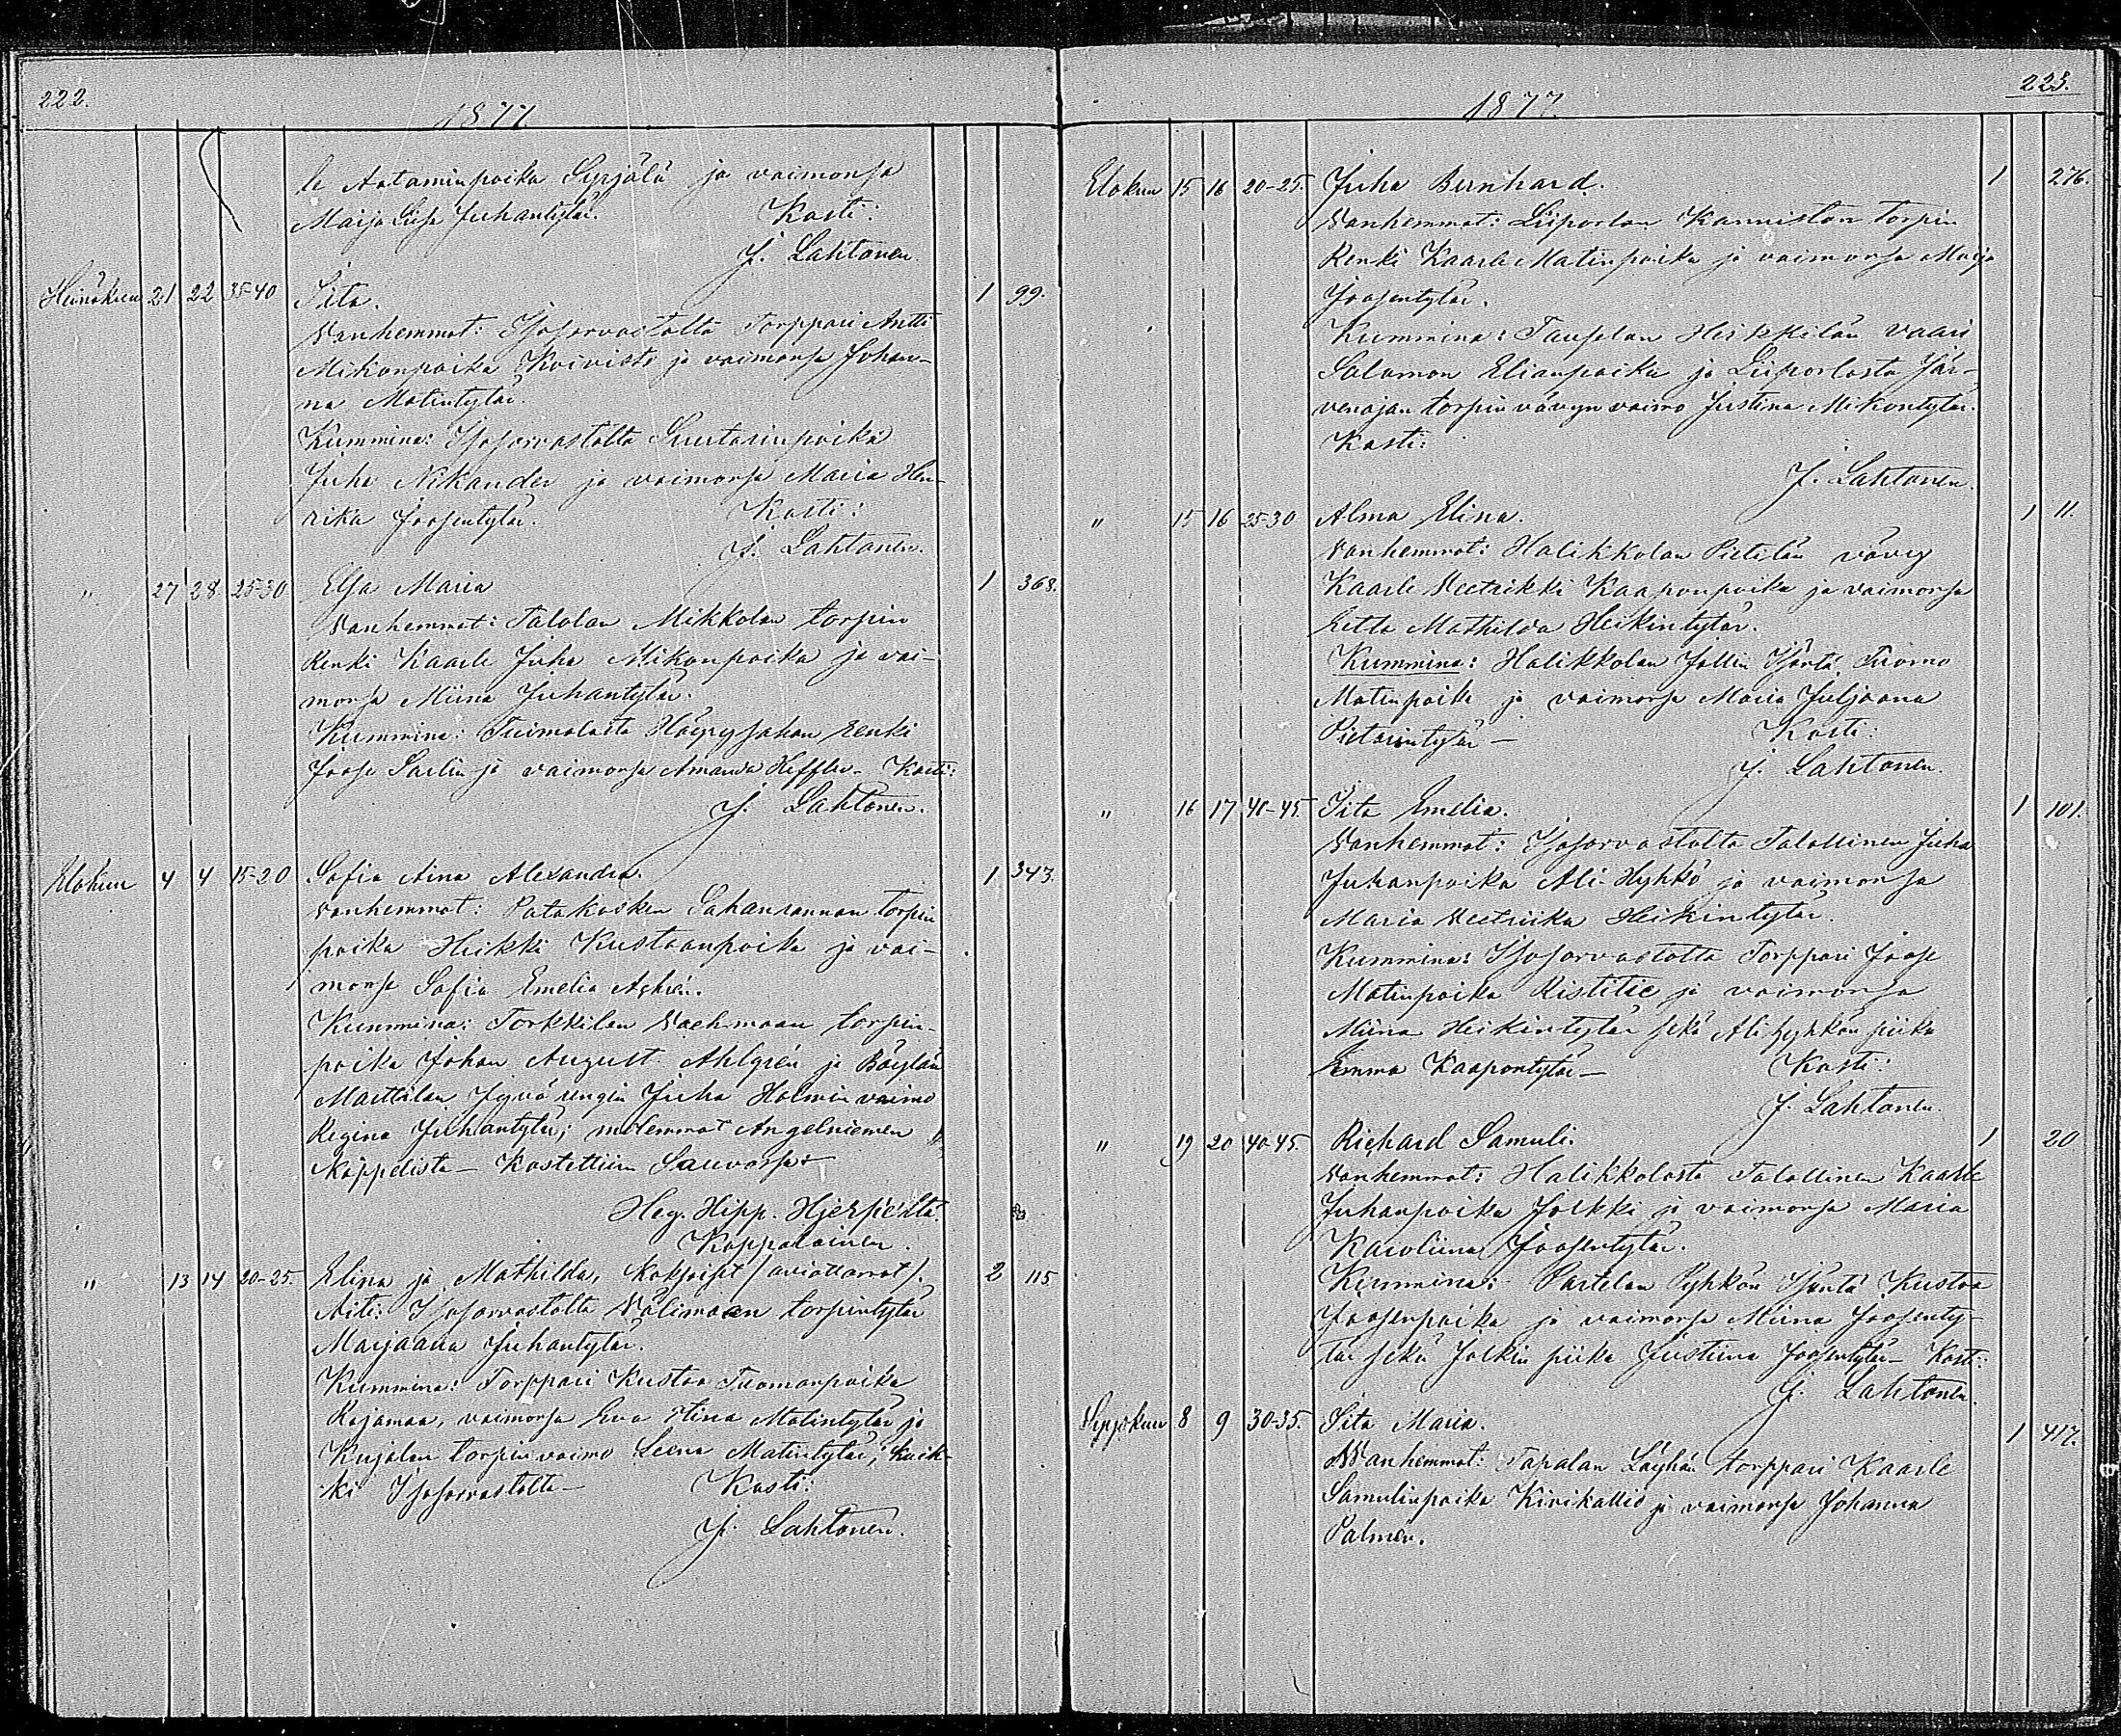 222.
1877.
le Aataminpoika Syrjälä ja vaimonsa
Maija Liisa Juhantytär. Kasti:
J. Lahtonen.
Heinäkuu 21 22 35-40 Iita. 1 99.
Vanhemmat: Isosorvastolta Torppari Antti
Mikonpoika Koivisto ja vaimonsa Johan-
na Matintytär.
Kummina: Isosorvastolta Suutarinpoika
Juha Nikander ja vaimonsa Maria Hen-
rika Joosentytär. Kasti:
J. Lahtonen.
" 27 28 25-30 Elsa Maria 1 368.
Vanhemmat: Talolan Mikkolan torpin
Renki Kaarle Juha Mikonpoika ja vai-
monsa Miina Juhantytär.
Kummina: renki
Joose Sarlin ja vaimonsa Amanda Kasti:
J. Lahtonen.
Elokuu 4 4 15-20 Sofia Aina Alexandra. 1 343.
Vanhemmat: Patakosken Sahanrannan torpin
poika Heikki Kustaanpoika ja vai-
monsa Sofia Emelia
Kummina: Torkkilan torpin-
poika Johan August Ahlgrén ja
Marttilan Juha Holmin vaimo
Regina Juhantytär; molemmat Angelniemen
Kappelista - Kastettiin Sauvossa
Heg. Hipp.
Kappalainen.
" 13 14 20-25. Elina ja Mathilda, kaksoiset (aviottomat). 2 115
Äiti: Isosorvastolta Välimaan torpintytär
Marjaana Juhantytär.
Kummina: Torppari Kustaa Tuomanpoika
Rajamaa, vaimonsa Eva Stina Matintytär ja
Kujalan torpin vaimo Leena Matintytär; kaik-
ki Isosorvastolta - Kasti:
J. Lahtonen.
223.
1877.
Elokuu 15 16 20-25. Juha Bernhard. 1 276.
Vanhemmat: Liiporlan Kanniston torpin
Renki Kaarle Matinpoika ja vaimonsa Maija
Joosentytär.
Kummina: Heikkilän vaari
Salomon Elianpoika ja Liiporlasta Jär-
venojan torpin vävyn vaimo Justina Mikontytär.
Kasti:
J. Lahtonen.
" 15 16 25-30 Alma Elina. 1 11.
Vanhemmat: Halikkolan Pietilän vävy
Kaarle Veetrikki Kaaponpoika ja vaimonsa
Eetla Mathilda Heikintytär.
Kummina: Halikkolan Isäntä Tuomo
Matinpoika ja vaimonsa Maria Juljaana
Pietarintytär - Kasti:
J. Lahtonen.
" 16 17 40-45. Iita Emelia. 1 101.
Vanhemmat: Isosorvastolta Talollinen Juha
Juhanpoika Ali-Hyhkö ja vaimonsa
Maria Veetriika Heikintytär.
Kummina: Isosorvastolta Torppari Joose
Matinpoika Ristitie ja vaimonsa
Miina Heikintytär sekä Alihyhkön piika
Emma Kaapontytär - Kasti:
J. Lahtonen.
" 19 20 40-45. Richard Samuli. 1 20
Vanhemmat: Halikkolasta Talollinen Kaarle
Juhanpoika Jolkki ja vaimonsa Maria
Karoliina Joosentytär.
Kummina: Partelan Pyhkön Isäntä Kustaa
Joosenpoika ja vaimonsa Miina Joosenty-
tär sekä Jolkin piika Justiina Joosentytär - Kasti:
J. Lahtonen.
Syyskuu 8 9 30-35. Iita Maria. 1 417.
Vanhemmat: Tapalan torppari Kaarle
Samulinpoika Kivikallio ja vaimonsa Johanna
Palmen.